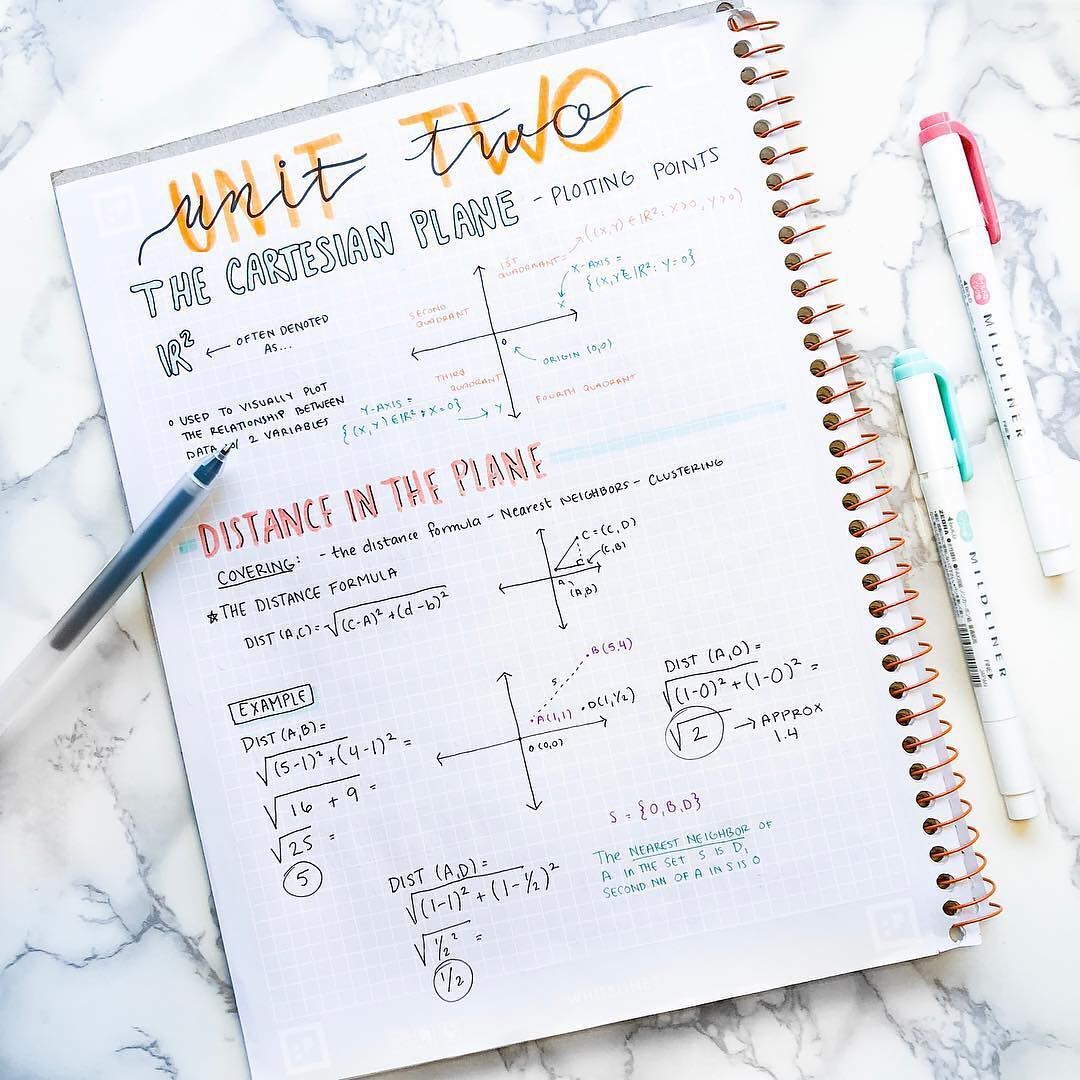 UNIT TWO
unit two
THE CARTESIAN PLANE - PLOTTING POINTS
1ST QUADRANT = {(X,Y) ∈ IR²: X>0, Y>0)
X-AXIS =
{(X,Y ∈ IR²: Y=0}
X
SECOND
QUADRANT
IR² ← OFTEN DENOTED
AS...
O
ORIGIN (0,0)
THIRD
QUADRANT
FOURTH QUADRANT
Y-AXIS =
{(X,Y) ∈ IR²: X=0} → Y
O USED TO VISUALLY PLOT
THE RELATIONSHIP BETWEEN
DATA w/ 2 VARIABLES
DISTANCE IN THE PLANE
COVERING: - the distance formula - Nearest NEIGHBORS - CLUSTERING
☆ THE DISTANCE FORMULA
DIST (A,C) = √(C-A)² + (d-b)²
C = (C, D)
(C,B)
C
A
(A,B)
EXAMPLE
DIST (A,B) =
√(5-1)² + (4-1)² =
√16 + 9 =
√25 =
5
B (5,4)
5
A (1,1)
D (1,1/2)
O (0,0)
DIST (A,O) =
√(1-0)² + (1-0)² =
√2 → APPROX
1.4
S = {O,B,D}
The NEAREST NEIGHBOR OF
A IN THE SET S IS D,
SECOND NN OF A IN S IS O
DIST (A,D) =
√(1-1)² + (1-1/2)²
√1/2² =
1/2
MILDLINER
MILDLINER
ZEBRA